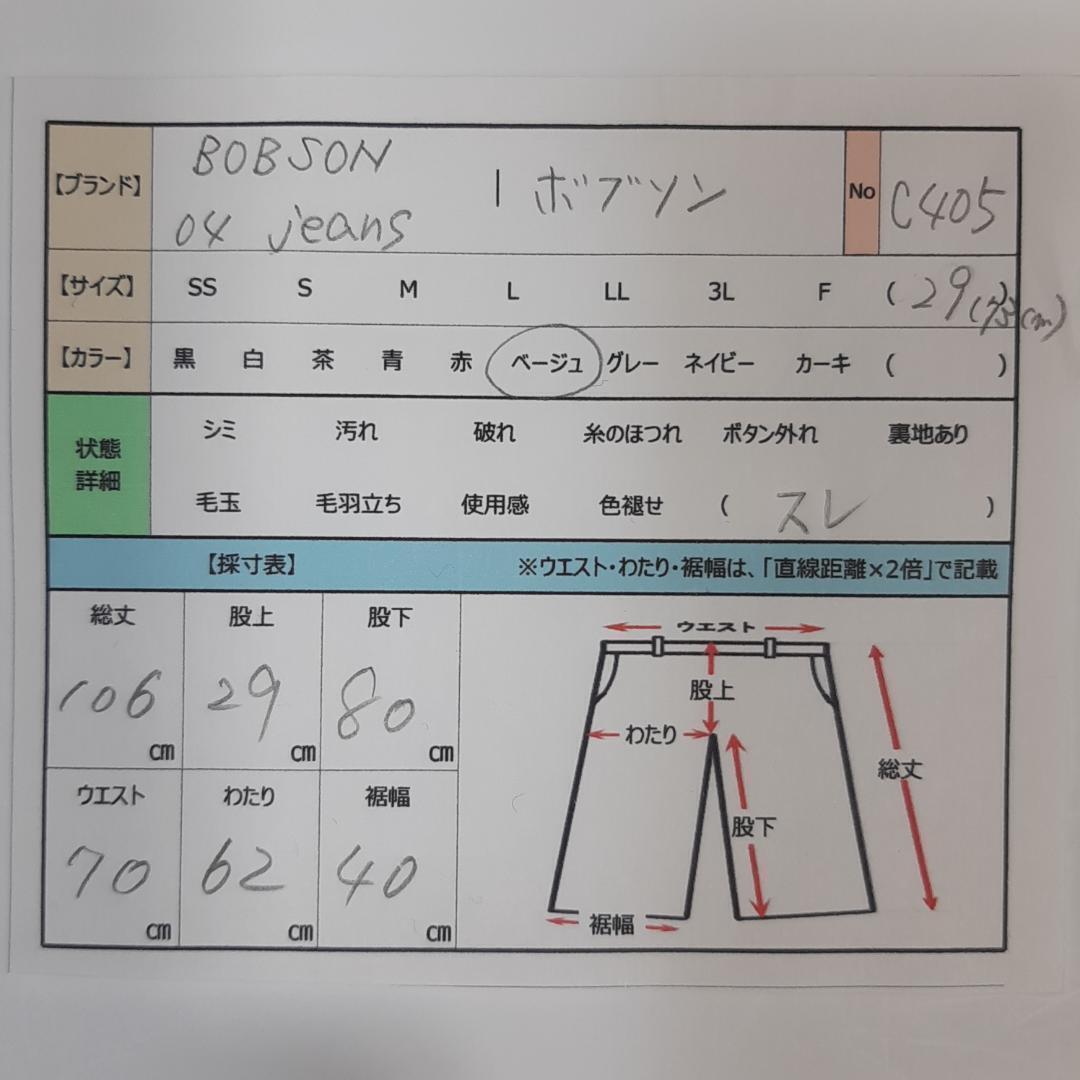 【ブランド】 BOBSON 04 jeans | ボブソン No C405
【サイズ】 SS S M L LL 3L F ( 29 (73cm) )
【カラー】 黒 白 茶 青 赤 ベージュ グレー ネイビー カーキ ( )
状態詳細 シミ 汚れ 破れ 糸のほつれ ボタン外れ 裏地あり
毛玉 毛羽立ち 使用感 色褪せ ( スレ )
【採寸表】 ※ウエスト・わたり・裾幅は、「直線距離×2倍」で記載
総丈 股上 股下
106 cm 29 cm 80 cm
ウエスト わたり 裾幅
70 cm 62 cm 40 cm
ウエスト
股上
わたり
総丈
股下
裾幅